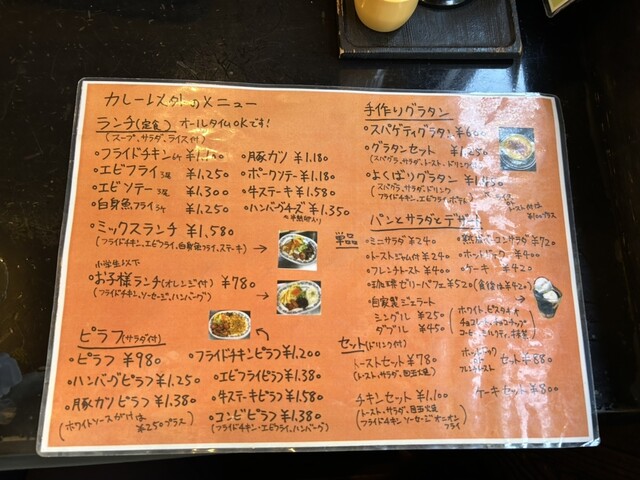 カレー以外のメニュー
ランチ(定食) オールタイムOKです!
(スープ、サラダ、ライス付)
・フライドチキン
・エビフライ 3尾 ¥1.250
・エビソテー 3尾 ¥1.300
・白身魚フライ ¥1.250
・豚カツ ¥1.180
・ポークソテー ¥1.180
・牛ステーキ ¥1.580
・ハンバーグチーズ ¥1.350
・ミックスランチ ¥1.580
(フライドチキン、エビフライ、白身魚フライ、ステーキ)
小学生以下
・お子様ランチ(オレンジ付) ¥780
(フライドチキン、ソーセージ、ハンバーグ)
ピラフ(サラダ付)
・ピラフ ¥980
・ハンバーグピラフ ¥1.250
・豚カツピラフ ¥1.380
(ホワイトソースがけは ¥250プラス)
・フライドチキンピラフ ¥1.200
・エビフライピラフ ¥1.380
・牛ステキピラフ ¥1.580
・コンビピラフ ¥1.380
(フライドチキン・エビフライ、ハンバーグ)
手作りグラタン
・スパゲティグラタン
・グラタンセット ¥1.250
(スパグラ、サラダ、トースト、ドリンク)
・よくばりグラタン
(スパグラ、サラダ、ドリンク
フライドチキン、エビフライ
トースト付は
¥100プラス
パンとサラダとデザート
単品
・ミニサラダ ¥240
・トーストジャム付 ¥240
・フレンチトースト ¥400
・コンサラダ ¥720
・ホットドック ¥400
・ケーキ ¥420
・珈琲ゼリーパフェ ¥520 (食後は¥420)
・自家製ジェラート
シングル ¥250
ダブル ¥450
(ホワイト、ピスタチオ
チョコレート、チョコチップ
コーヒー、ミルクティ、抹茶)
セット(ドリンク付)
トーストセット ¥780
(トースト、サラダ、目玉焼)
ホットドック
or
フレンチトースト
セット ¥880
チキンセット ¥1.100
(トースト、サラダ、目玉焼
フライドチキン ソーセージ オニオン
フライ)
ケーキセット ¥800